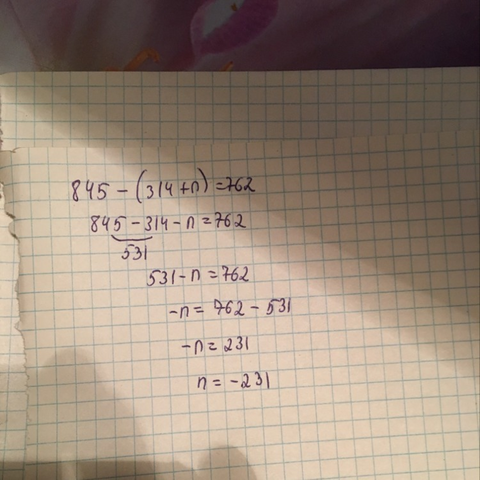 845 - (314 + n) = 762
845 - 314 - n = 762
531
531 - n = 762
-n = 762 - 531
-n = 231
n = -231